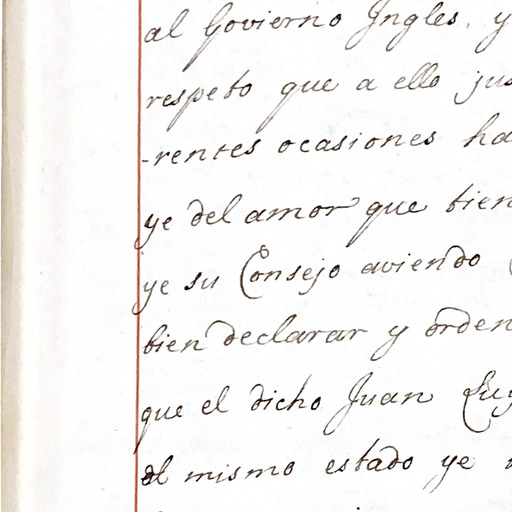 al Govierno Jngles, y
respeto que a ello jus
-rentes ocasiones ha
ye del amor que tien
ye su Consejo aviendo
bien declarar y orden
que el dicho Juan Luy
al mismo estado ye